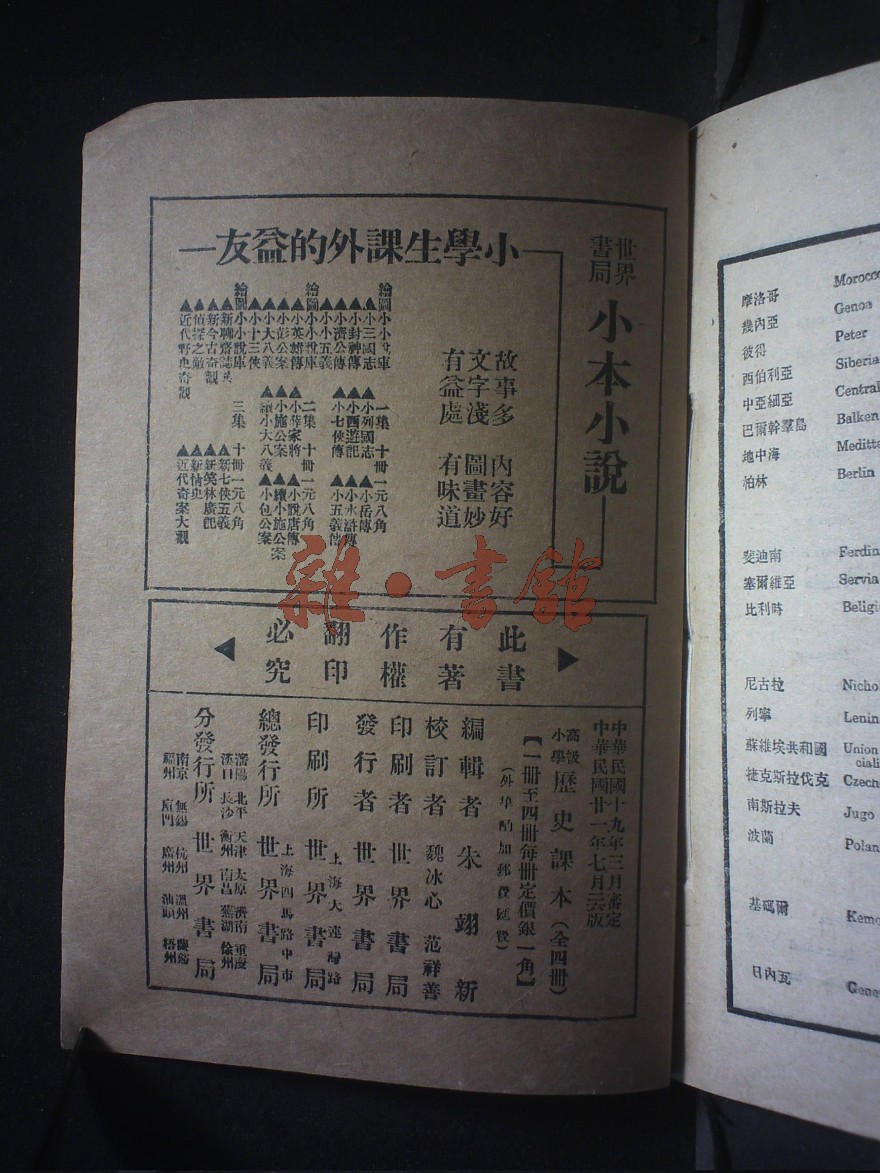 世界書局
小本小說
小學生課外的益友
故事多 內容好
文字淺 圖畫妙
有益處 有味道
繪圖小小說庫 一集 十冊一元八角
▲小三國志 ▲小列國志 ▲小岳傳
▲小封神傳 ▲小西遊記 ▲小水滸傳
▲小濟公傳 ▲小七俠傳 ▲小五義傳
▲小小五義
繪圖小小說庫 二集 十冊一元八角
▲小英烈傳 ▲小薛家將 ▲小說唐傳
▲小彭公案 ▲小施公案 ▲續小施公案
▲小大八義 ▲續小大八義 ▲小包公案
▲小十三俠
繪圖小小說庫 三集 十冊一元八角
▲新聊齋誌異 ▲新七俠五義
▲新今古奇觀 ▲新笑林廣記
▲偵探之敵 ▲新情史
▲近代野史奇觀 ▲近代奇案大觀
此書有著作權翻印必究
中華民國十九年三月審定
中華民國廿一年七月 版
高級小學 歷史課本(全四冊)
【一冊至四冊每冊定價銀一角】
(外埠酌加郵費匯費)
編輯者 朱翊新
校訂者 魏冰心 范祥善
印刷者 世界書局
發行者 世界書局
印刷所 上海大連灣路 世界書局
總發行所 上海四馬路中市 世界書局
瀋陽 北平 天津 太原 濟南 重慶
漢口 長沙 衡州 南昌 蕪湖 徐州
分發行所 世界書局
南京 無錫 杭州 溫州 蘭谿
福州 廈門 廣州 汕頭 梧州
雜·書館
摩洛哥 Morocco
幾內亞 Genoa
彼得 Peter
西伯利亞 Siberia
中亞細亞 Central
巴爾幹羣島 Balken
地中海 Meditte
柏林 Berlin
斐迪南 Ferdin
塞爾維亞 Servia
比利時 Beligi
尼古拉 Nichol
列寧 Lenin
蘇維埃共和國 Union
cialis
捷克斯拉伐克 Czech
南斯拉夫 Jugo
波蘭 Polan
基碼爾 Kemo
日內瓦 Gene